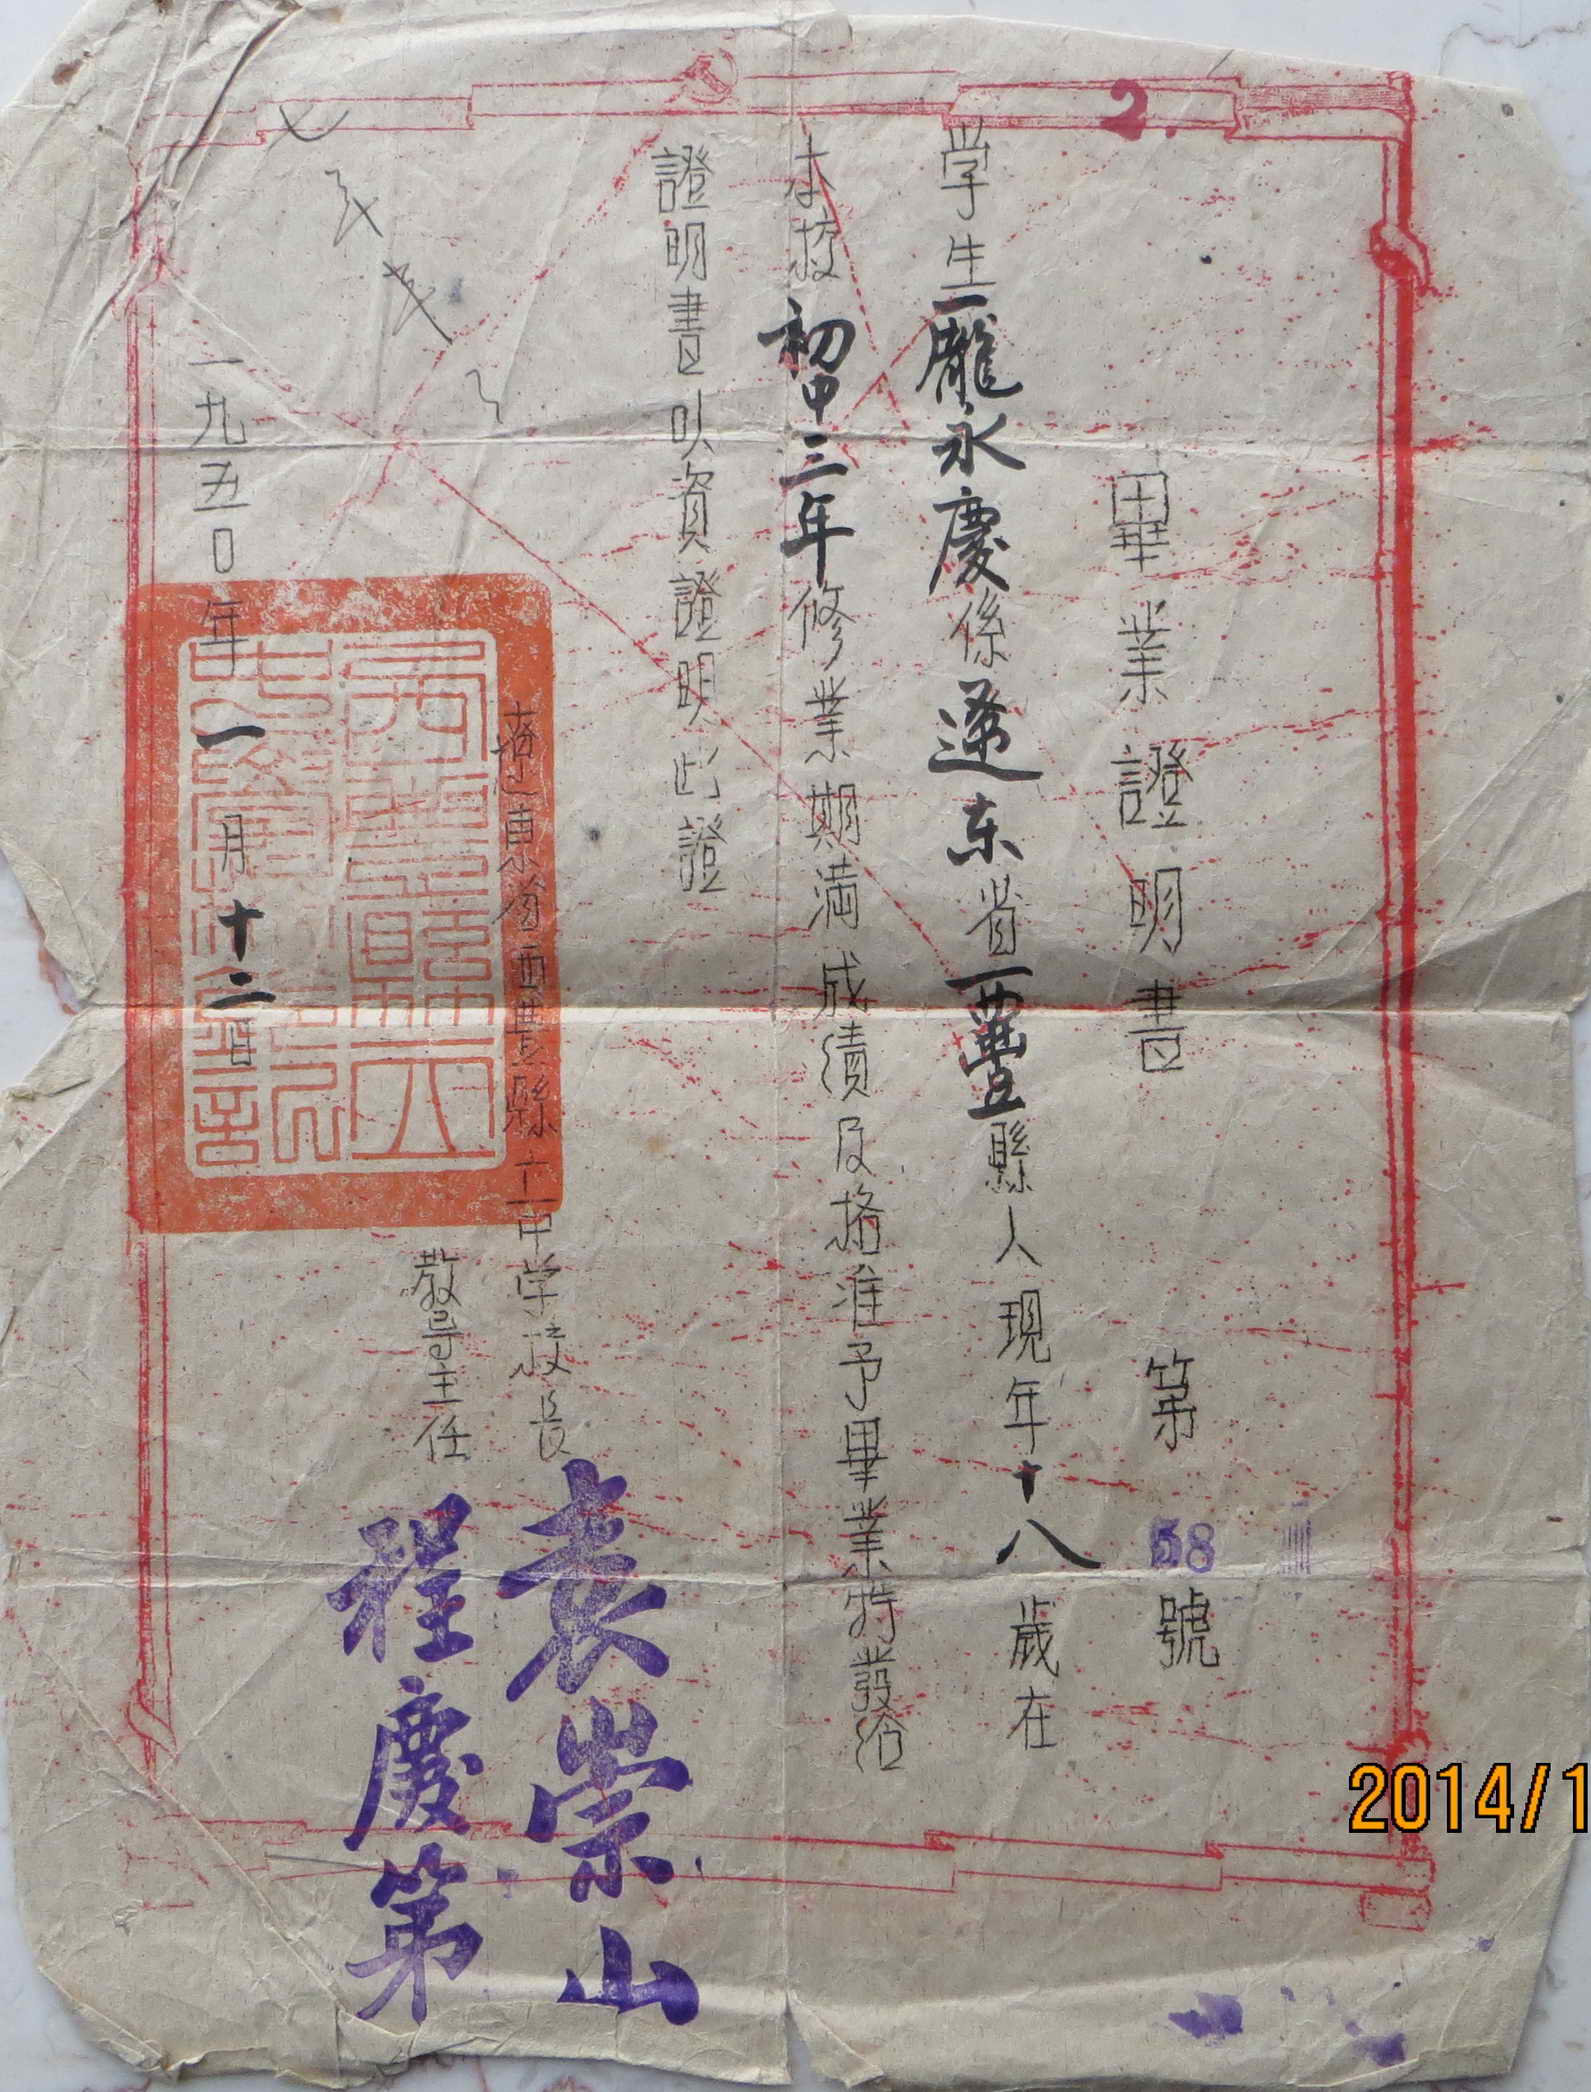 畢業證明書 第58號
学生龐永慶係遼东省西豐縣人現年十八歲在
本校初中三年修業期満成績及格准予畢業特發給
證明書以資證明此證
遼東省西豐縣立中学校長 袁崇山
教导主任 程慶第
一九五〇年一月十二日
2.
2014/1